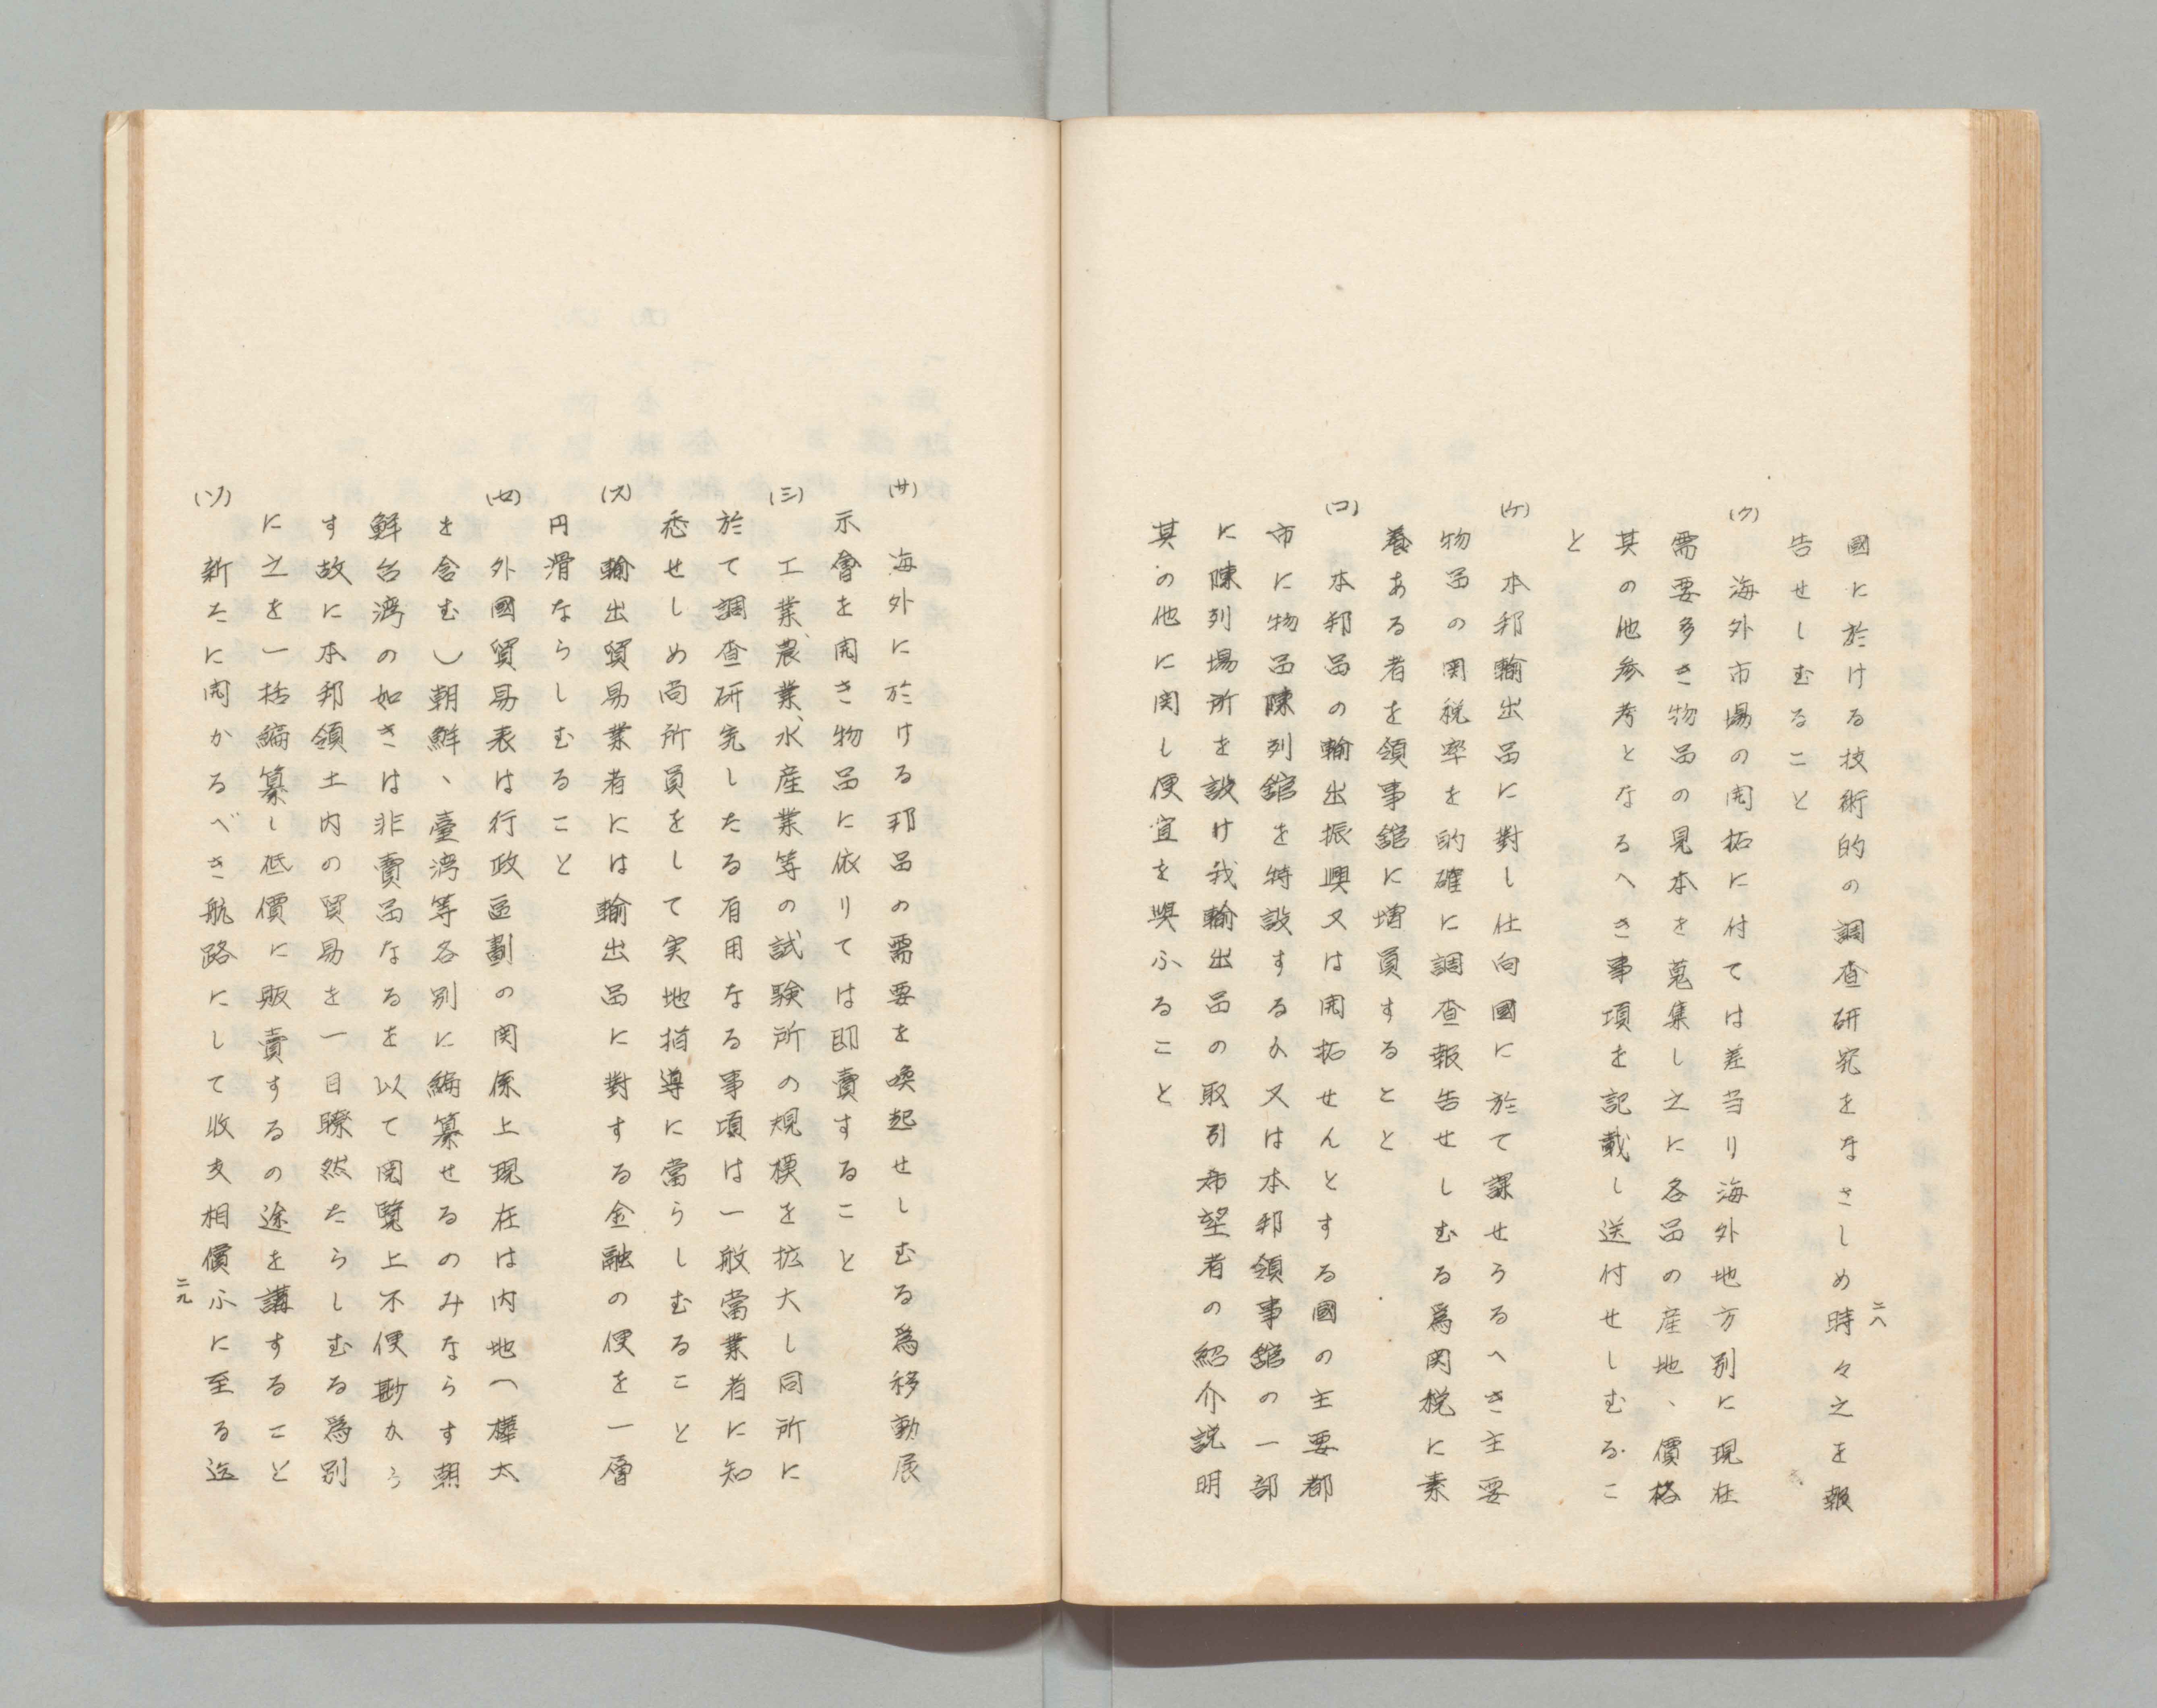 二八
國に於ける技術的の調査研究をなさしめ時々之を報
告せしむること
(ク) 海外市場の開拓に付ては差当り海外地方別に現在
需要多き物品の見本を蒐集し之に各品の産地、價格
其の他参考となるへき事項を記載し送付せしむるこ
と
(ケ) 本邦輸出品に對し仕向國に於て課せらるへき主要
物品の関税率を的確に調査報告せしむる爲関税に素
養ある者を領事舘に増員すること
(コ) 本邦品の輸出振興又は開拓せんとする國の主要都
市に物品陳列舘を特設するか又は本邦領事舘の一部
に陳列場所を設け我輸出品の取引希望者の紹介説明
其の他に関し便宜を與ふること
(サ) 海外に於ける邦品の需要を喚起せしむる爲移動展
示會を開き物品に依りては即賣すること
(シ) 工業、農業、水産業等の試験所の規模を拡大し同所に
於て調査研究したる有用なる事項は一般當業者に知
悉せしめ尚所員をして実地指導に當らしむること
(ス) 輸出貿易業者には輸出品に對する金融の便を一層
円滑ならしむること
(セ) 外國貿易表は行政區劃の関係上現在は内地(樺太
を含む)朝鮮、臺湾等各別に編纂せるのみならす朝
鮮台湾の如きは非賣品なるを以て閲覧上不便尠から
す故に本邦領土内の貿易を一目瞭然たらしむる爲別
に之を一括編纂し低價に販賣するの途を講すること
(ソ) 新たに開かるべき航路にして收支相償ふに至る迄
二九